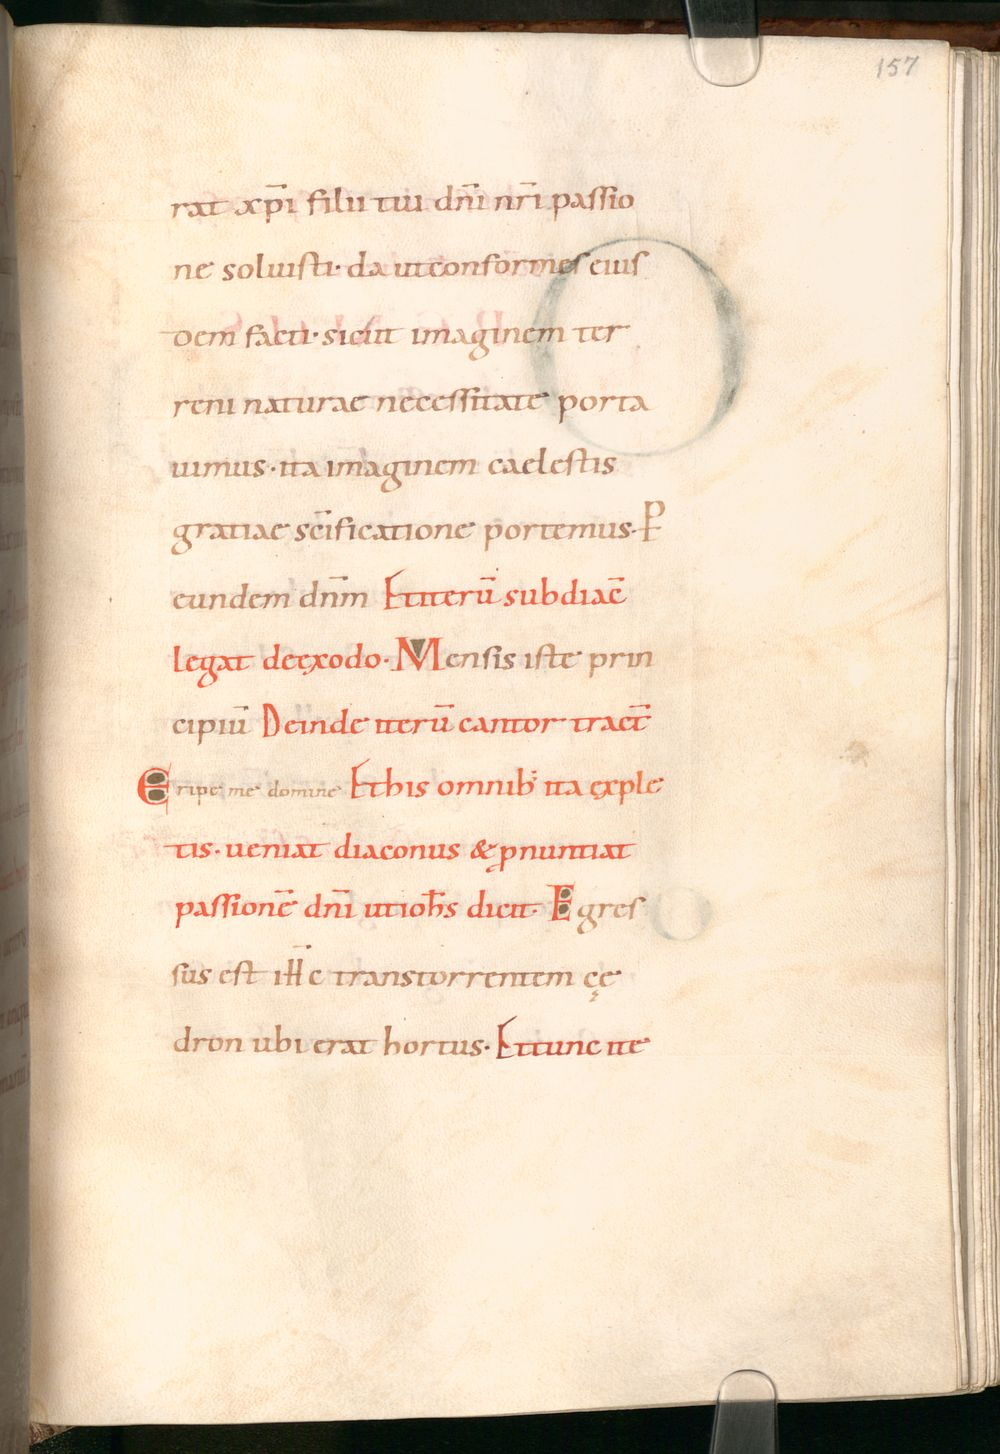 157
rat xp̄i filii tui dn̄i nr̄i passio
ne soluisti· da ut conformes eius
dem facti· sicut imaginem ter
reni naturae necessitate porta
uimus· ita imaginem caelestis
gratiae sc̄ificatione portemus· ꝑ
eundem dn̄m Et iterū subdiac̄
legat de exodo· Mensis iste prin
cipiū Deinde iterū cantor tract̄
Eripe me domine Et his omnib; ita exple
tis· ueniat diaconus & ꝓnuntiat
passionē dn̄i ut ioh̄s dicit· Egres
sus est ih̄c trans torrentem cę
dron ubi erat hortus· Et tunc ite